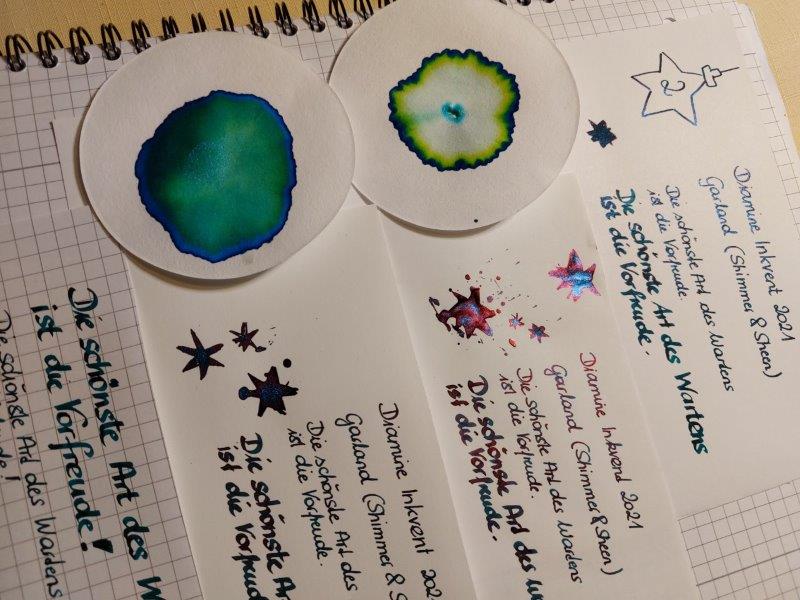 2
Diamine Inkvent 2021
Garland (Shimmer & Sheen)
Die schönste Art des Wartens
ist die Vorfreude.
Die schönste Art des Wartens
ist die Vorfreude.
Diamine Inkvend 2021
Garland (Shimmer & Sheen)
Die schönste Art des Wartens
ist die Vorfreude.
Die schönste Art des
ist die Vorfreude.
Diamine Inkvent 202
Garland (Shimmer & S
Die schönste Art des
ist die Vorfreude.
Die schönste Ar
ist die Vorfreud
Die schönste Art des W
ist die Vorfreude!
Die schönste Art des Wartens